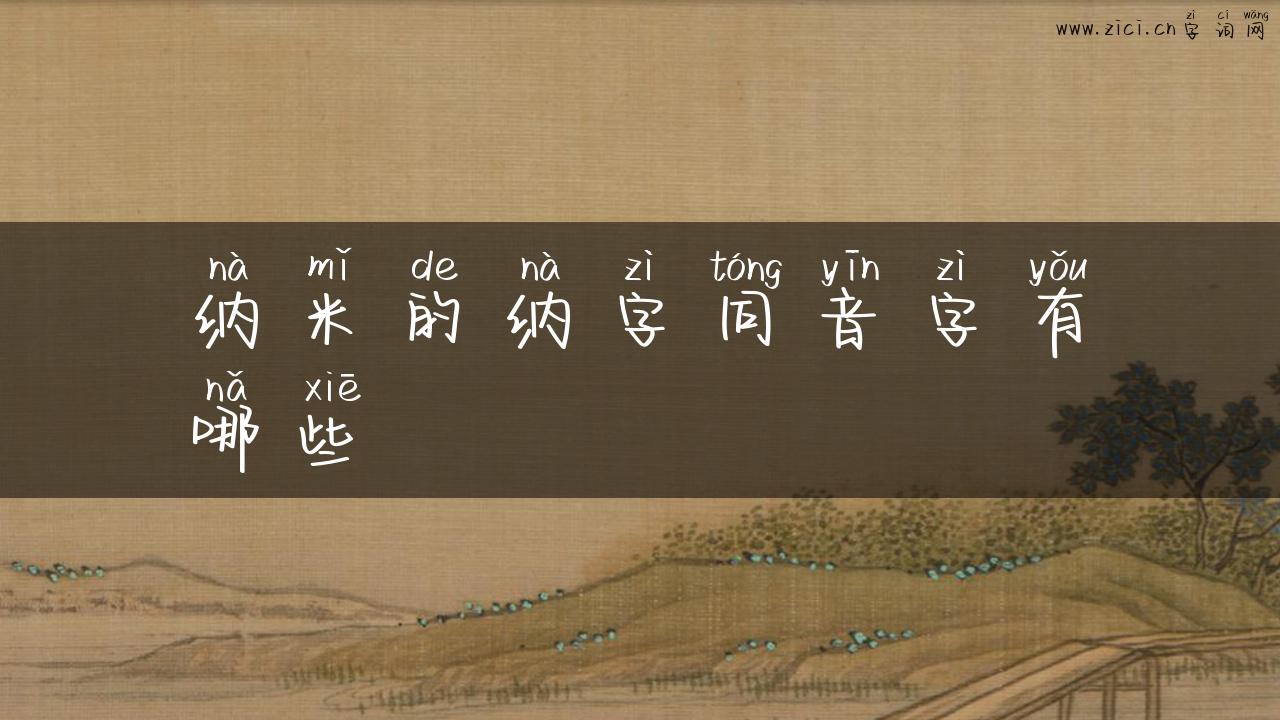 zì cí wǎng
www.zici.cn字词网
nà mǐ de nà zì tóng yīn zì yǒu
纳米的纳字同音字有
nǎ xiē
哪些